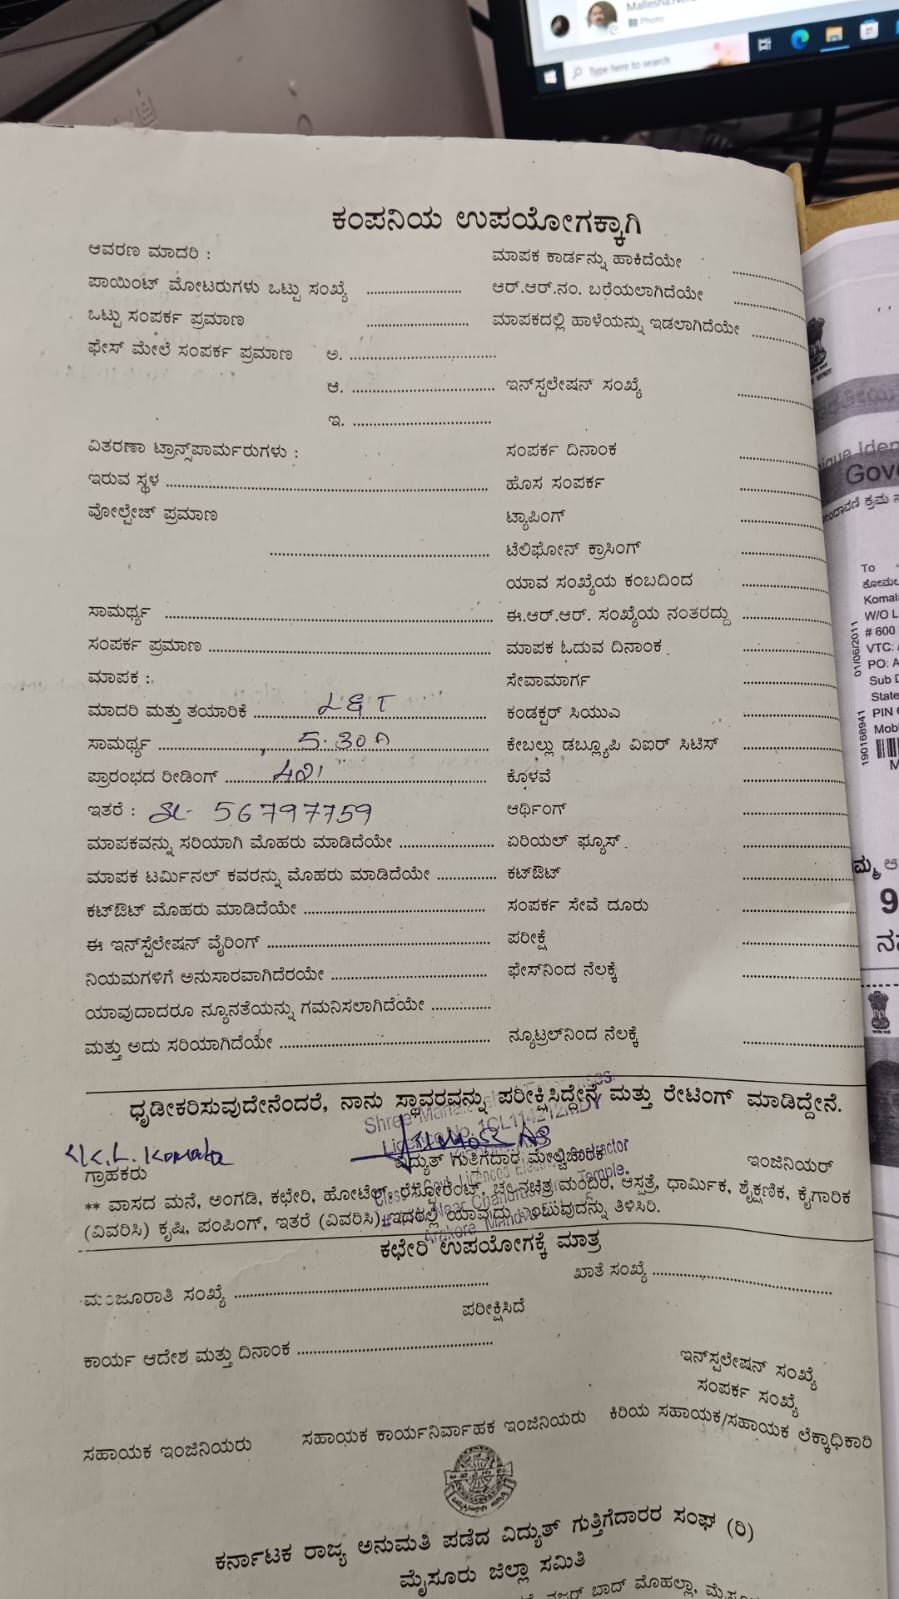 Photo
Type here to search
ಕಂಪನಿಯ ಉಪಯೋಗಕ್ಕಾಗಿ
ಆವರಣ ಮಾದರಿ : ಮಾಪಕ ಕಾರ್ಡನ್ನು ಹಾಕಿದೆಯೇ
ಪಾಯಿಂಟ್ ಮೋಟರುಗಳು ಒಟ್ಟು ಸಂಖ್ಯೆ ಆರ್.ಆರ್.ನಂ. ಬರೆಯಲಾಗಿದೆಯೇ
ಒಟ್ಟು ಸಂಪರ್ಕ ಪ್ರಮಾಣ ಮಾಪಕದಲ್ಲಿ ಹಾಳೆಯನ್ನು ಇಡಲಾಗಿದೆಯೇ
ಫೇಸ್ ಮೇಲೆ ಸಂಪರ್ಕ ಪ್ರಮಾಣ ಅ.
ಆ. ಇನ್‌ಸ್ಟಲೇಷನ್ ಸಂಖ್ಯೆ
ಇ.
ವಿತರಣಾ ಟ್ರಾನ್ಸ್‌ಪಾರ್ಮರುಗಳು : ಸಂಪರ್ಕ ದಿನಾಂಕ
ಇರುವ ಸ್ಥಳ ಹೊಸ ಸಂಪರ್ಕ
ವೋಲ್ಟೇಜ್ ಪ್ರಮಾಣ ಟ್ಯಾಪಿಂಗ್
ಟೆಲಿಫೋನ್ ಕ್ರಾಸಿಂಗ್
ಯಾವ ಸಂಖ್ಯೆಯ ಕಂಬದಿಂದ
ಸಾಮರ್ಥ್ಯ ಈ.ಆರ್.ಆರ್. ಸಂಖ್ಯೆಯ ನಂತರದ್ದು
ಸಂಪರ್ಕ ಪ್ರಮಾಣ ಮಾಪಕ ಓದುವ ದಿನಾಂಕ
ಮಾಪಕ : ಸೇವಾಮಾರ್ಗ
ಮಾದರಿ ಮತ್ತು ತಯಾರಿಕೆ L&T ಕಂಡಕ್ಟರ್ ಸಿಯುಎ
ಸಾಮರ್ಥ್ಯ 5-30A ಕೇಬಲ್ಲು ಡಬ್ಲ್ಯೂಪಿ ವಿಐರ್ ಸಿಟಿಸ್
ಪ್ರಾರಂಭದ ರೀಡಿಂಗ್ ಕೊಳವೆ
ಇತರೆ : SL- 56797759 ಆರ್ಥಿಂಗ್
ಮಾಪಕವನ್ನು ಸರಿಯಾಗಿ ಮೊಹರು ಮಾಡಿದೆಯೇ ಏರಿಯಲ್ ಫ್ಯೂಸ್
ಮಾಪಕ ಟರ್ಮಿನಲ್ ಕವರನ್ನು ಮೊಹರು ಮಾಡಿದೆಯೇ ಕಟ್‌ಔಟ್
ಕಟ್‌ಔಟ್ ಮೊಹರು ಮಾಡಿದೆಯೇ ಸಂಪರ್ಕ ಸೇವೆ ದೂರು
ಈ ಇನ್‌ಸ್ಟೆಲೇಷನ್ ವೈರಿಂಗ್ ಪರೀಕ್ಷೆ
ನಿಯಮಗಳಿಗೆ ಅನುಸಾರವಾಗಿದೆರಯೇ ಫೇಸ್‌ನಿಂದ ನೆಲಕ್ಕೆ
ಯಾವುದಾದರೂ ನ್ಯೂನತೆಯನ್ನು ಗಮನಿಸಲಾಗಿದೆಯೇ
ಮತ್ತು ಅದು ಸರಿಯಾಗಿದೆಯೇ ನ್ಯೂಟ್ರಲ್‌ನಿಂದ ನೆಲಕ್ಕೆ
ಧೃಡೀಕರಿಸುವುದೇನೆಂದರೆ, ನಾನು ಸ್ಥಾವರವನ್ನು ಪರೀಕ್ಷಿಸಿದ್ದೇನೆ ಮತ್ತು ರೇಟಿಂಗ್ ಮಾಡಿದ್ದೇನೆ.
K.L. Komala
ಗ್ರಾಹಕರು ವಿದ್ಯುತ್ ಗುತಿಗೆದಾರ ಮೇಲ್ವಿಚಾರಕ ಇಂಜಿನಿಯರ್
** ವಾಸದ ಮನೆ, ಅಂಗಡಿ, ಕಛೇರಿ, ಹೋಟೆಲ್, ರೆಸ್ಟೋರೆಂಟ್, ಚಲನಚಿತ್ರ ಮಂದಿರ, ಆಸ್ಪತ್ರೆ, ಧಾರ್ಮಿಕ, ಶೈಕ್ಷಣಿಕ, ಕೈಗಾರಿಕ
(ವಿವರಿಸಿ) ಕೃಷಿ, ಪಂಪಿಂಗ್, ಇತರೆ (ವಿವರಿಸಿ) ಇದರಲ್ಲಿ ಯಾವುದು ಎಂಬುವುದನ್ನು ತಿಳಿಸಿರಿ.
ಕಛೇರಿ ಉಪಯೋಗಕ್ಕೆ ಮಾತ್ರ
ಮಂಜೂರಾತಿ ಸಂಖ್ಯೆ ಖಾತೆ ಸಂಖ್ಯೆ
ಪರೀಕ್ಷಿಸಿದೆ
ಕಾರ್ಯ ಆದೇಶ ಮತ್ತು ದಿನಾಂಕ
ಇನ್‌ಸ್ಟಲೇಷನ್ ಸಂಖ್ಯೆ
ಸಂಪರ್ಕ ಸಂಖ್ಯೆ
ಸಹಾಯಕ ಇಂಜಿನಿಯರು ಸಹಾಯಕ ಕಾರ್ಯನಿರ್ವಾಹಕ ಇಂಜಿನಿಯರು ಕಿರಿಯ ಸಹಾಯಕ/ಸಹಾಯಕ ಲೆಕ್ಕಾಧಿಕಾರಿ
ಕರ್ನಾಟಕ ರಾಜ್ಯ ಅನುಮತಿ ಪಡೆದ ವಿದ್ಯುತ್ ಗುತ್ತಿಗೆದಾರರ ಸಂಘ (ರಿ)
ಮೈಸೂರು ಜಿಲ್ಲಾ ಸಮಿತಿ
ಬಾದ್ ಮೊಹಲ್ಲಾ,
To
W/O
# 600
VTC:
PO:
Sub
State
PIN
01/06/2011
190168941